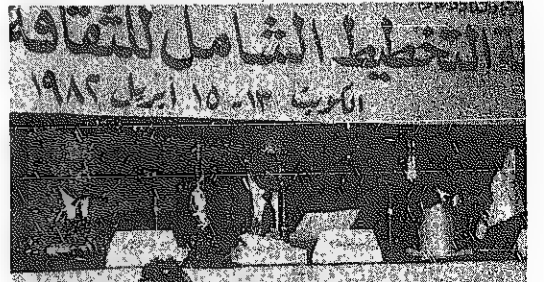 التخطيط الشامل للثقافة
الكويت ١٣ـ ١٥ ابريل ١٩٨٢